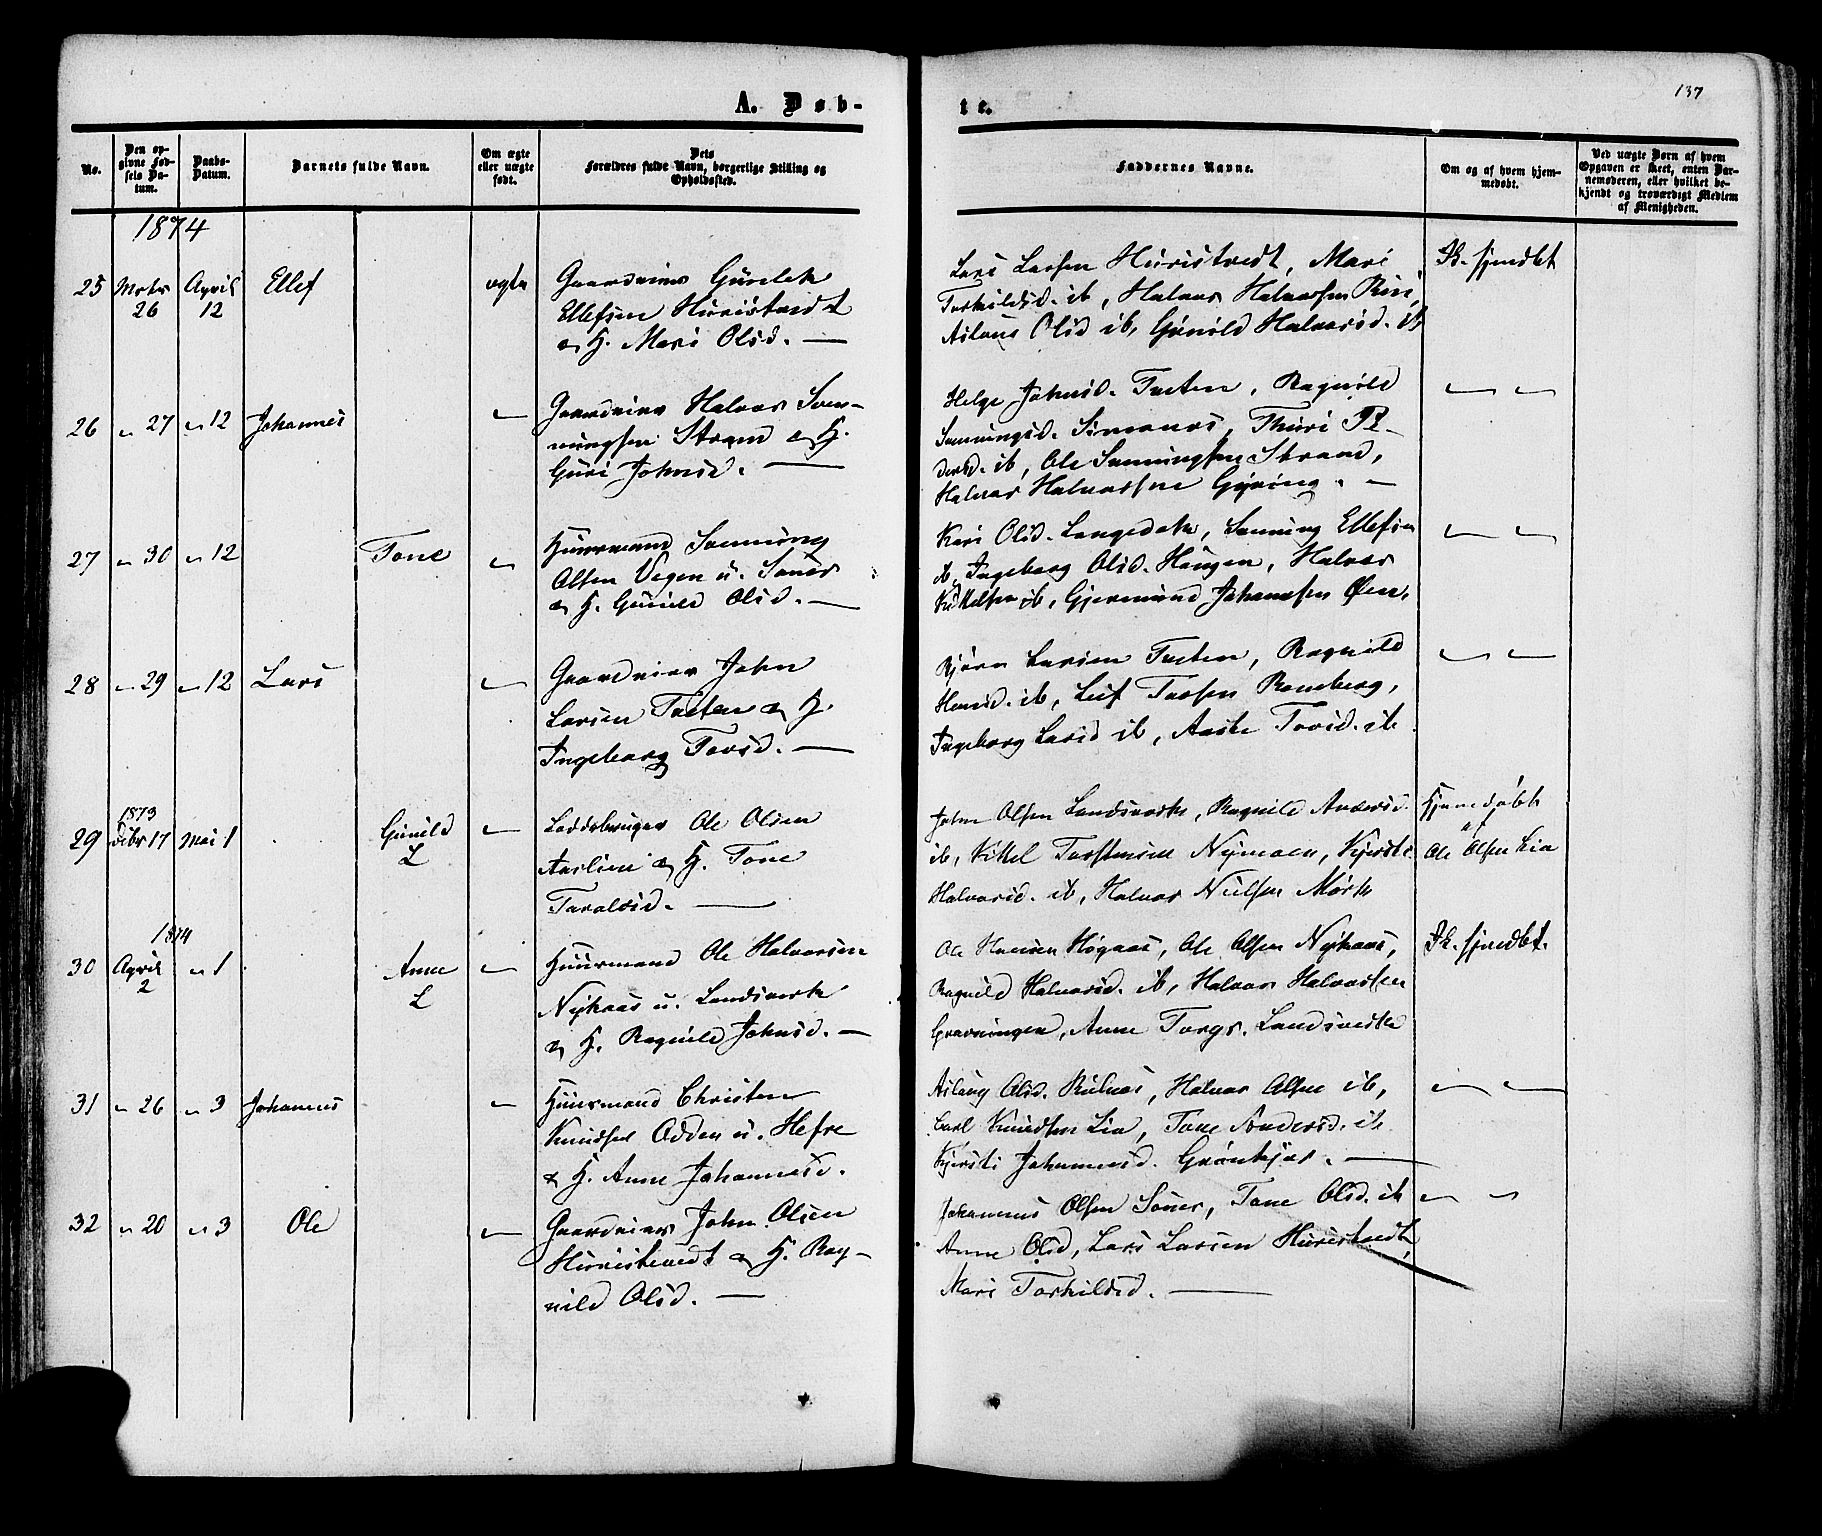 137
A. Døb-
te.
No.
Den op-
givne Fød-
sels Da-
tum.
Daabs-
Datum.
Barnets fulde Navn.
Om ægte
eller uægte
født.
Dets
Forældres fulde Navn, borgerlige Stilling og
Opholdssted.
Faddernes Navne.
Om og af hvem hjem-
medøbt.
Ved uægte Børn af hvem
Opgaven er skeet, enten Bar-
nemoderen, eller hvilket be-
kjendt og troværdigt Medlem
af Menigheden.
1874
25 Mrts 26 April 12 Ellef ægte
Gaardeier Gunlek
Ellefsen Huvistvedt
& H. Mari Olsd. —
Lars Larsen Huvistvedt, Mari
Torkildsd. ib, Halvor Halvorsen
Aslaug Olsd ib, Gunild Halvorsd. ib
26 " 27 " 12 Johannes "
Gaardeier Halvor Sven-
ningsen Strand & H.
Guri Johnsd. —
Helge Johnsd. Tveten, Ragnild
Svenningsd. Simones, Thuri Pe-
dersd. ib, Ole Svenningsen Strand,
Halvor Halvorsen —
" "
27 " 30 " 12 Tone "
Huusmand Svenning
Olsen Vegen u. Soner
& H. Gunild Olsd. —
Kari Olsd. Langedok, Svenning Ellefsen
ib, Ingeborg Olsd. Haugen, Halvor
Kittelsen ib, Gjermund Johannesen Øen,
" "
28 " 29 " 12 Lars "
Gaardeier John
Larsen Tveten & H.
Ingeborg Tovsd. —
Bjørn Larsen Tveten, Ragnild
Hansd. ib, Leif Tovsen Romberg,
Ingeborg Larsd ib, Aaste Tovsd. ib
" "
1873
29 Dcbr 17 Mai 1 Gunild
L "
Loddebruger Ole Olsen
Aaslien & H. Tone
Taraldsd. —
John Olsen Landsverk, Ragnild Andersd.
ib, Kittel Torstensen Nymoen, Kjersti
Halvorsd. ib, Halvor Nielsen Mørk
Hjemmedøbt
af
Ole Olsen Lia
1874
30 April 2 " 1 Anne
L "
Huusmand Ole Halvorsen
Nyhaas u. Landsverk
& H. Ragnild Johnsd. —
Ole Hansen Høgaas, Ole Olsen Nyhaas,
Ragnild Halvorsd. ib, Halvor Halvorsen
Gravningen, Anne Torgs. Landsverk
31 " 26 " 3 Johannes "
Huusmand Christen
Knudsen Odden u. Hefre
& H. Anne Johannesd.
Aslaug Olsd. Halvor Olsen ib,
Carl Knudsen Lia, Tone Andersd. ib
Kjersti Johannesd. Grönkjær. —
" "
32 " 20 " 3 Ole "
Gaardeier John Olsen
Huvistvedt & H. Rag-
nild Olsd. —
Johannes Olsen Soner, Tone Olsd. ib
Anne Olsd, Lars Larsen Huvistvedt,
Mari Torkildsd. —
" "